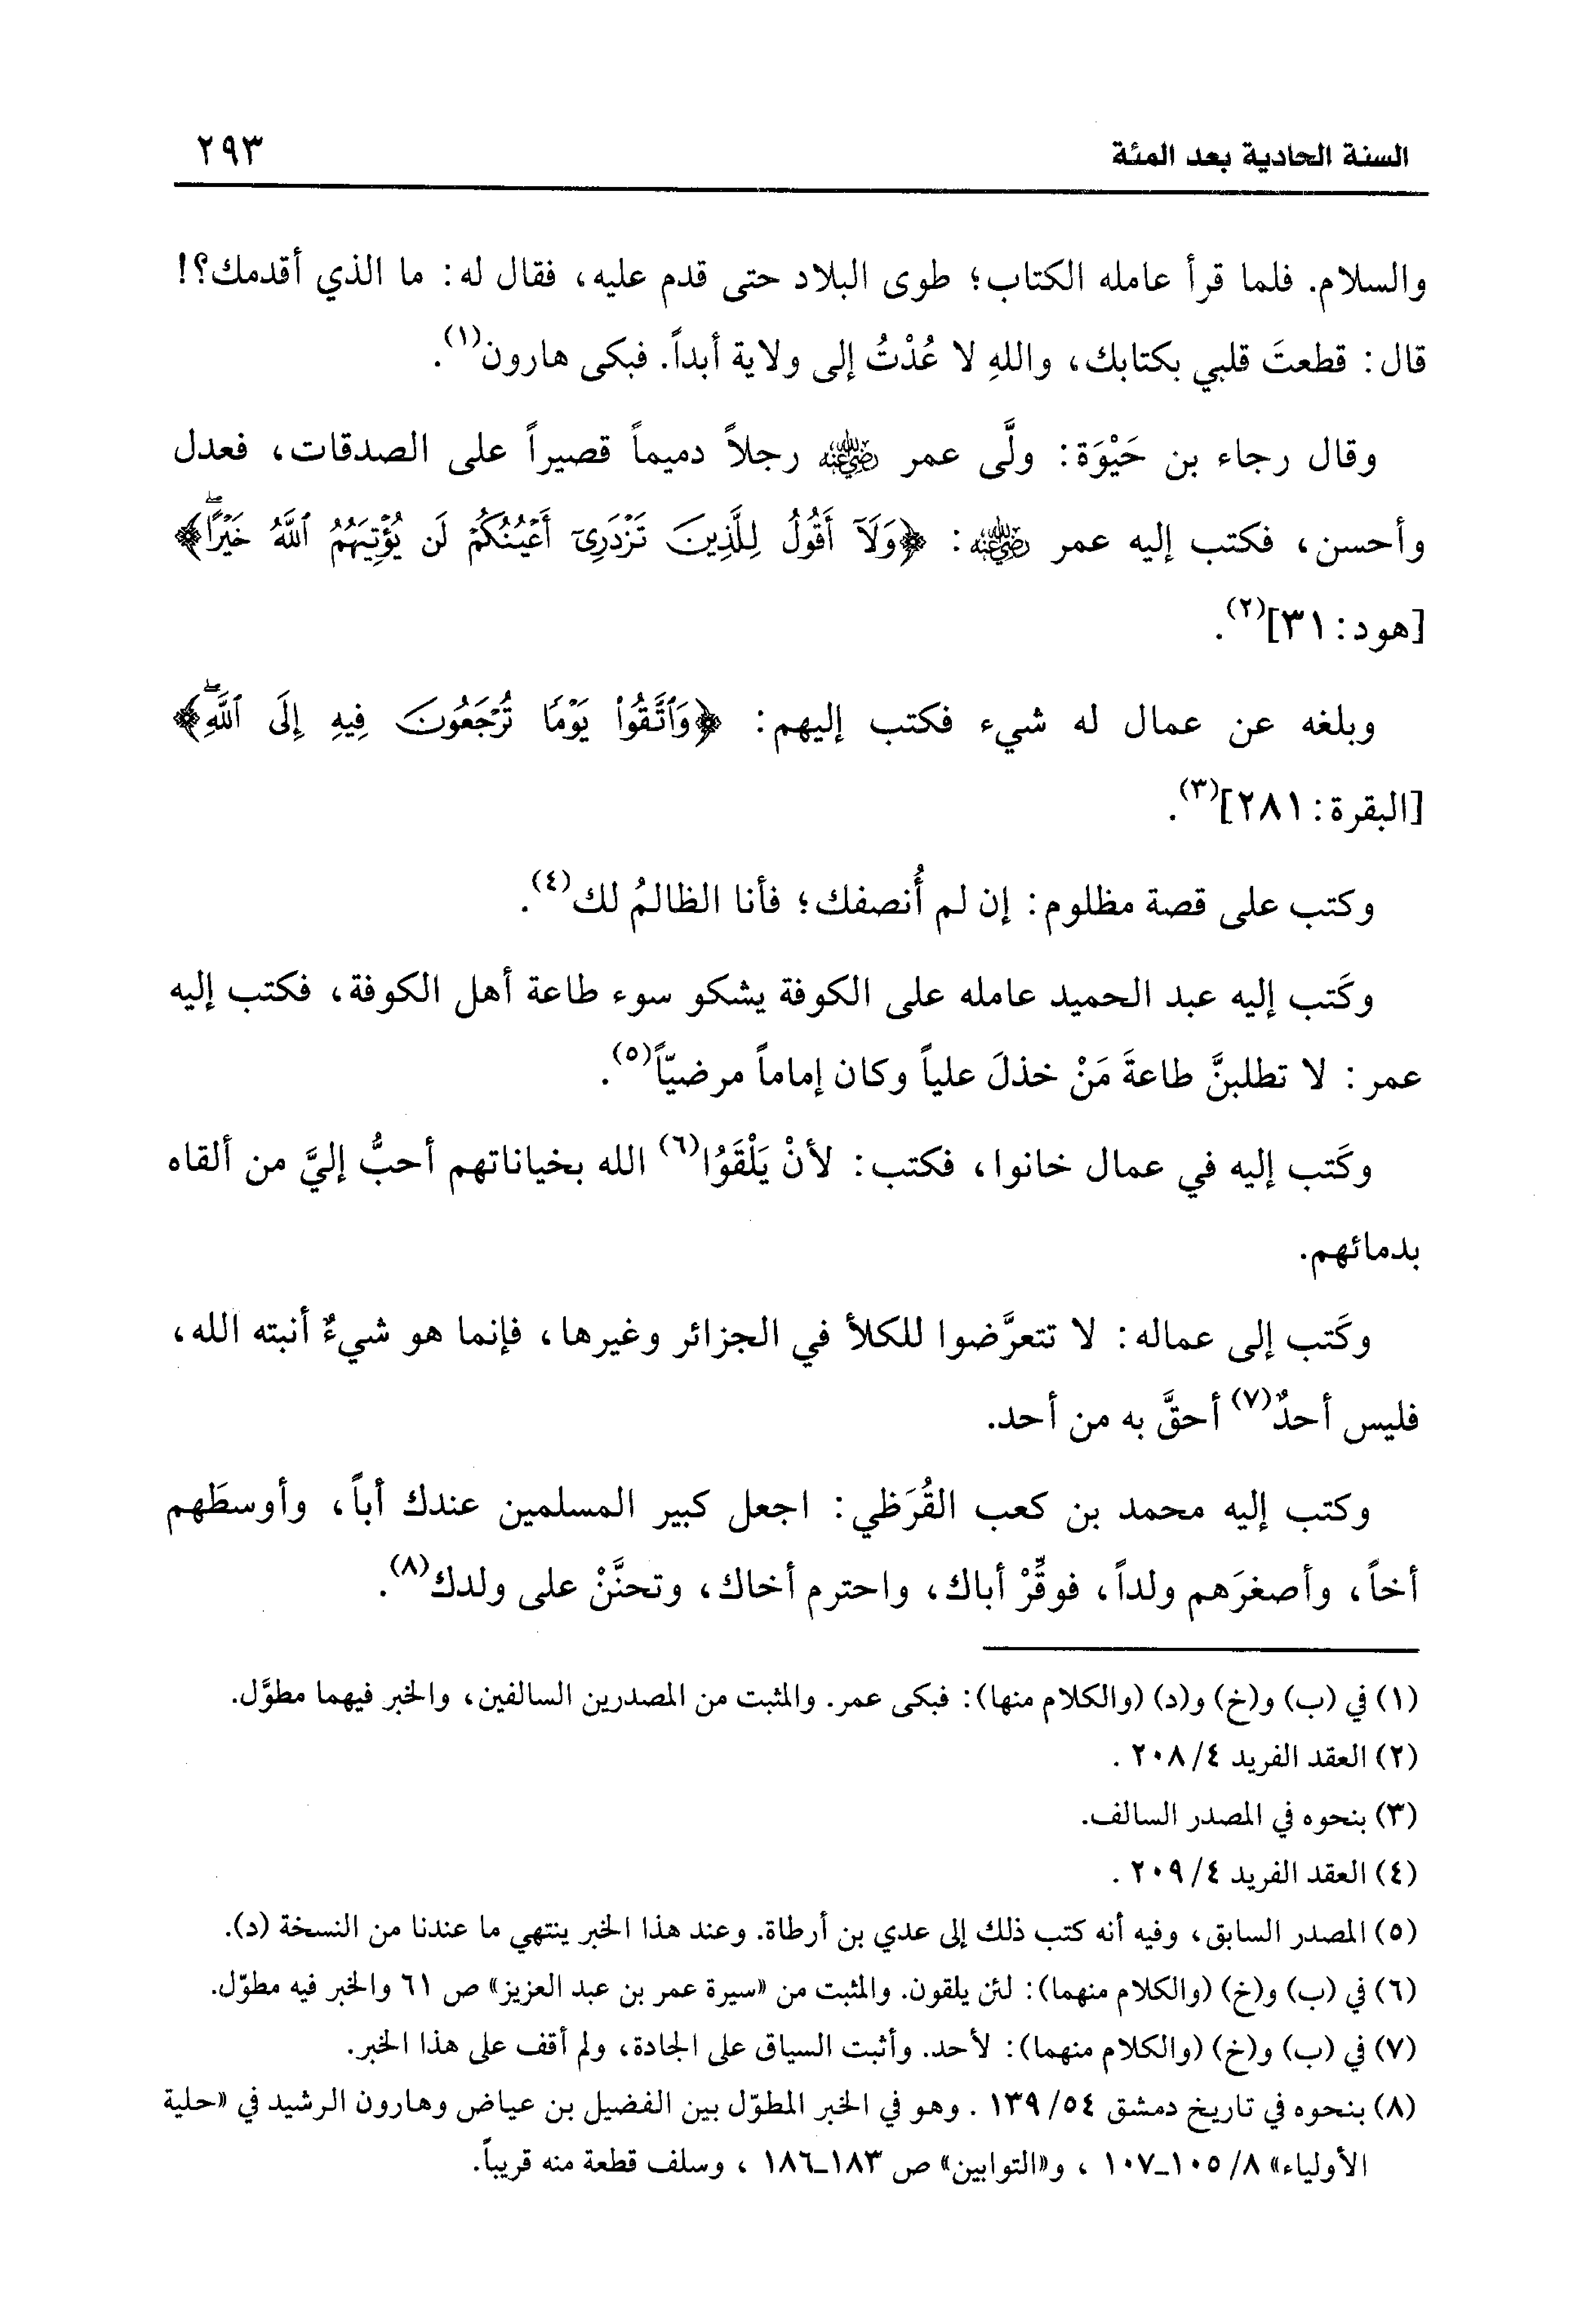 السنة الحادية بعد المئة ٢٩٣
والسلام. فلما قرأ عامله الكتاب؛ طوى البلاد حتى قدم عليه، فقال له: ما الذي أقدمك؟!
قال: قطعتَ قلبي بكتابك، واللهِ لا عُدْتُ إلى ولاية أبداً. فبكى هارون(١).
وقال رجاء بن حَيْوَة: ولَّى عمر رضي الله عنه رجلاً دميماً قصيراً على الصدقات، فعدل
وأحسن، فكتب إليه عمر رضي الله عنه: ﴿وَلَآ أَقُولُ لِلَّذِينَ تَزْدَرِىٓ أَعْيُنُكُمْ لَن يُؤْتِيَهُمُ ٱللَّهُ خَيْرًاۖ﴾
[هود: ٣١](٢).
وبلغه عن عمال له شيء فكتب إليهم: ﴿وَٱتَّقُوا۟ يَوْمًا تُرْجَعُونَ فِيهِ إِلَى ٱللَّهِۖ﴾
[البقرة: ٢٨١](٣).
وكتب على قصة مظلوم: إن لم أُنصفك؛ فأنا الظالمُ لك(٤).
وكَتب إليه عبد الحميد عامله على الكوفة يشكو سوء طاعة أهل الكوفة، فكتب إليه
عمر: لا تطلبنَّ طاعةَ مَنْ خذلَ علياً وكان إماماً مرضيّاً(٥).
وكَتب إليه في عمال خانوا، فكتب: لأنْ يَلْقَوُا(٦) الله بخياناتهم أحبُّ إليَّ من ألقاه
بدمائهم.
وكَتب إلى عماله: لا تتعرَّضوا للكلأ في الجزائر وغيرها، فإنما هو شيءٌ أنبته الله،
فليس أحدٌ(٧) أحقَّ به من أحد.
وكتب إليه محمد بن كعب القُرَظي: اجعل كبير المسلمين عندك أباً، وأوسطَهم
أخاً، وأصغرَهم ولداً، فوقِّرْ أباك، واحترم أخاك، وتحنَّنْ على ولدك(٨).
(١) في (ب) و(خ) و(د) (والكلام منها): فبكى عمر. والمثبت من المصدرين السالفين، والخبر فيهما مطوَّل.
(٢) العقد الفريد ٢٠٨/٤ .
(٣) بنحوه في المصدر السالف.
(٤) العقد الفريد ٢٠٩/٤ .
(٥) المصدر السابق، وفيه أنه كتب ذلك إلى عدي بن أرطاة. وعند هذا الخبر ينتهي ما عندنا من النسخة (د).
(٦) في (ب) و(خ) (والكلام منهما): لئن يلقون. والمثبت من «سيرة عمر بن عبد العزيز» ص ٦١ والخبر فيه مطوّل.
(٧) في (ب) و(خ) (والكلام منهما): لأحد. وأثبت السياق على الجادة، ولم أقف على هذا الخبر.
(٨) بنحوه في تاريخ دمشق ١٣٩/٥٤ . وهو في الخبر المطوّل بين الفضيل بن عياض وهارون الرشيد في «حلية
الأولياء» ١٠٥/٨-١٠٧ ، و«التوابين» ص ١٨٣-١٨٦ ، وسلف قطعة منه قريباً.